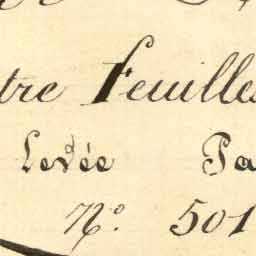 tre feuilles
Levée Pa
N.° 501